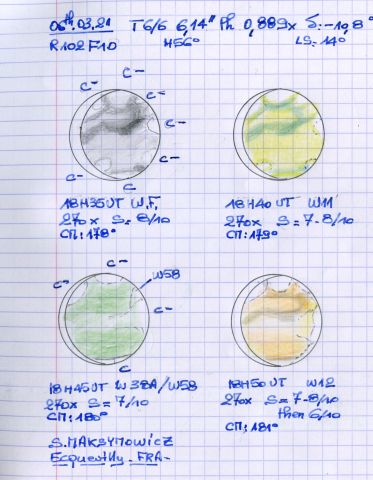 06th.03.21 T6/6 6,14" Ph 0,889x δ:-10,8°
R102F10 H56° LS:14°
C- C-
C- C-
C- C-
C-
C
18H35UT W.F. 18H40UT W11
270x S=8/10 270x S=7-8/10
CM:178° CM:179°
C- W58
C- C-
C
18H45UT W38A/W58 18H50UT W12
270x S=7/10 270x S=7-8/10
CM:180° then 6/10
CM:181°
S.MAKSYMOWICZ
Ecquevilly-FRA-